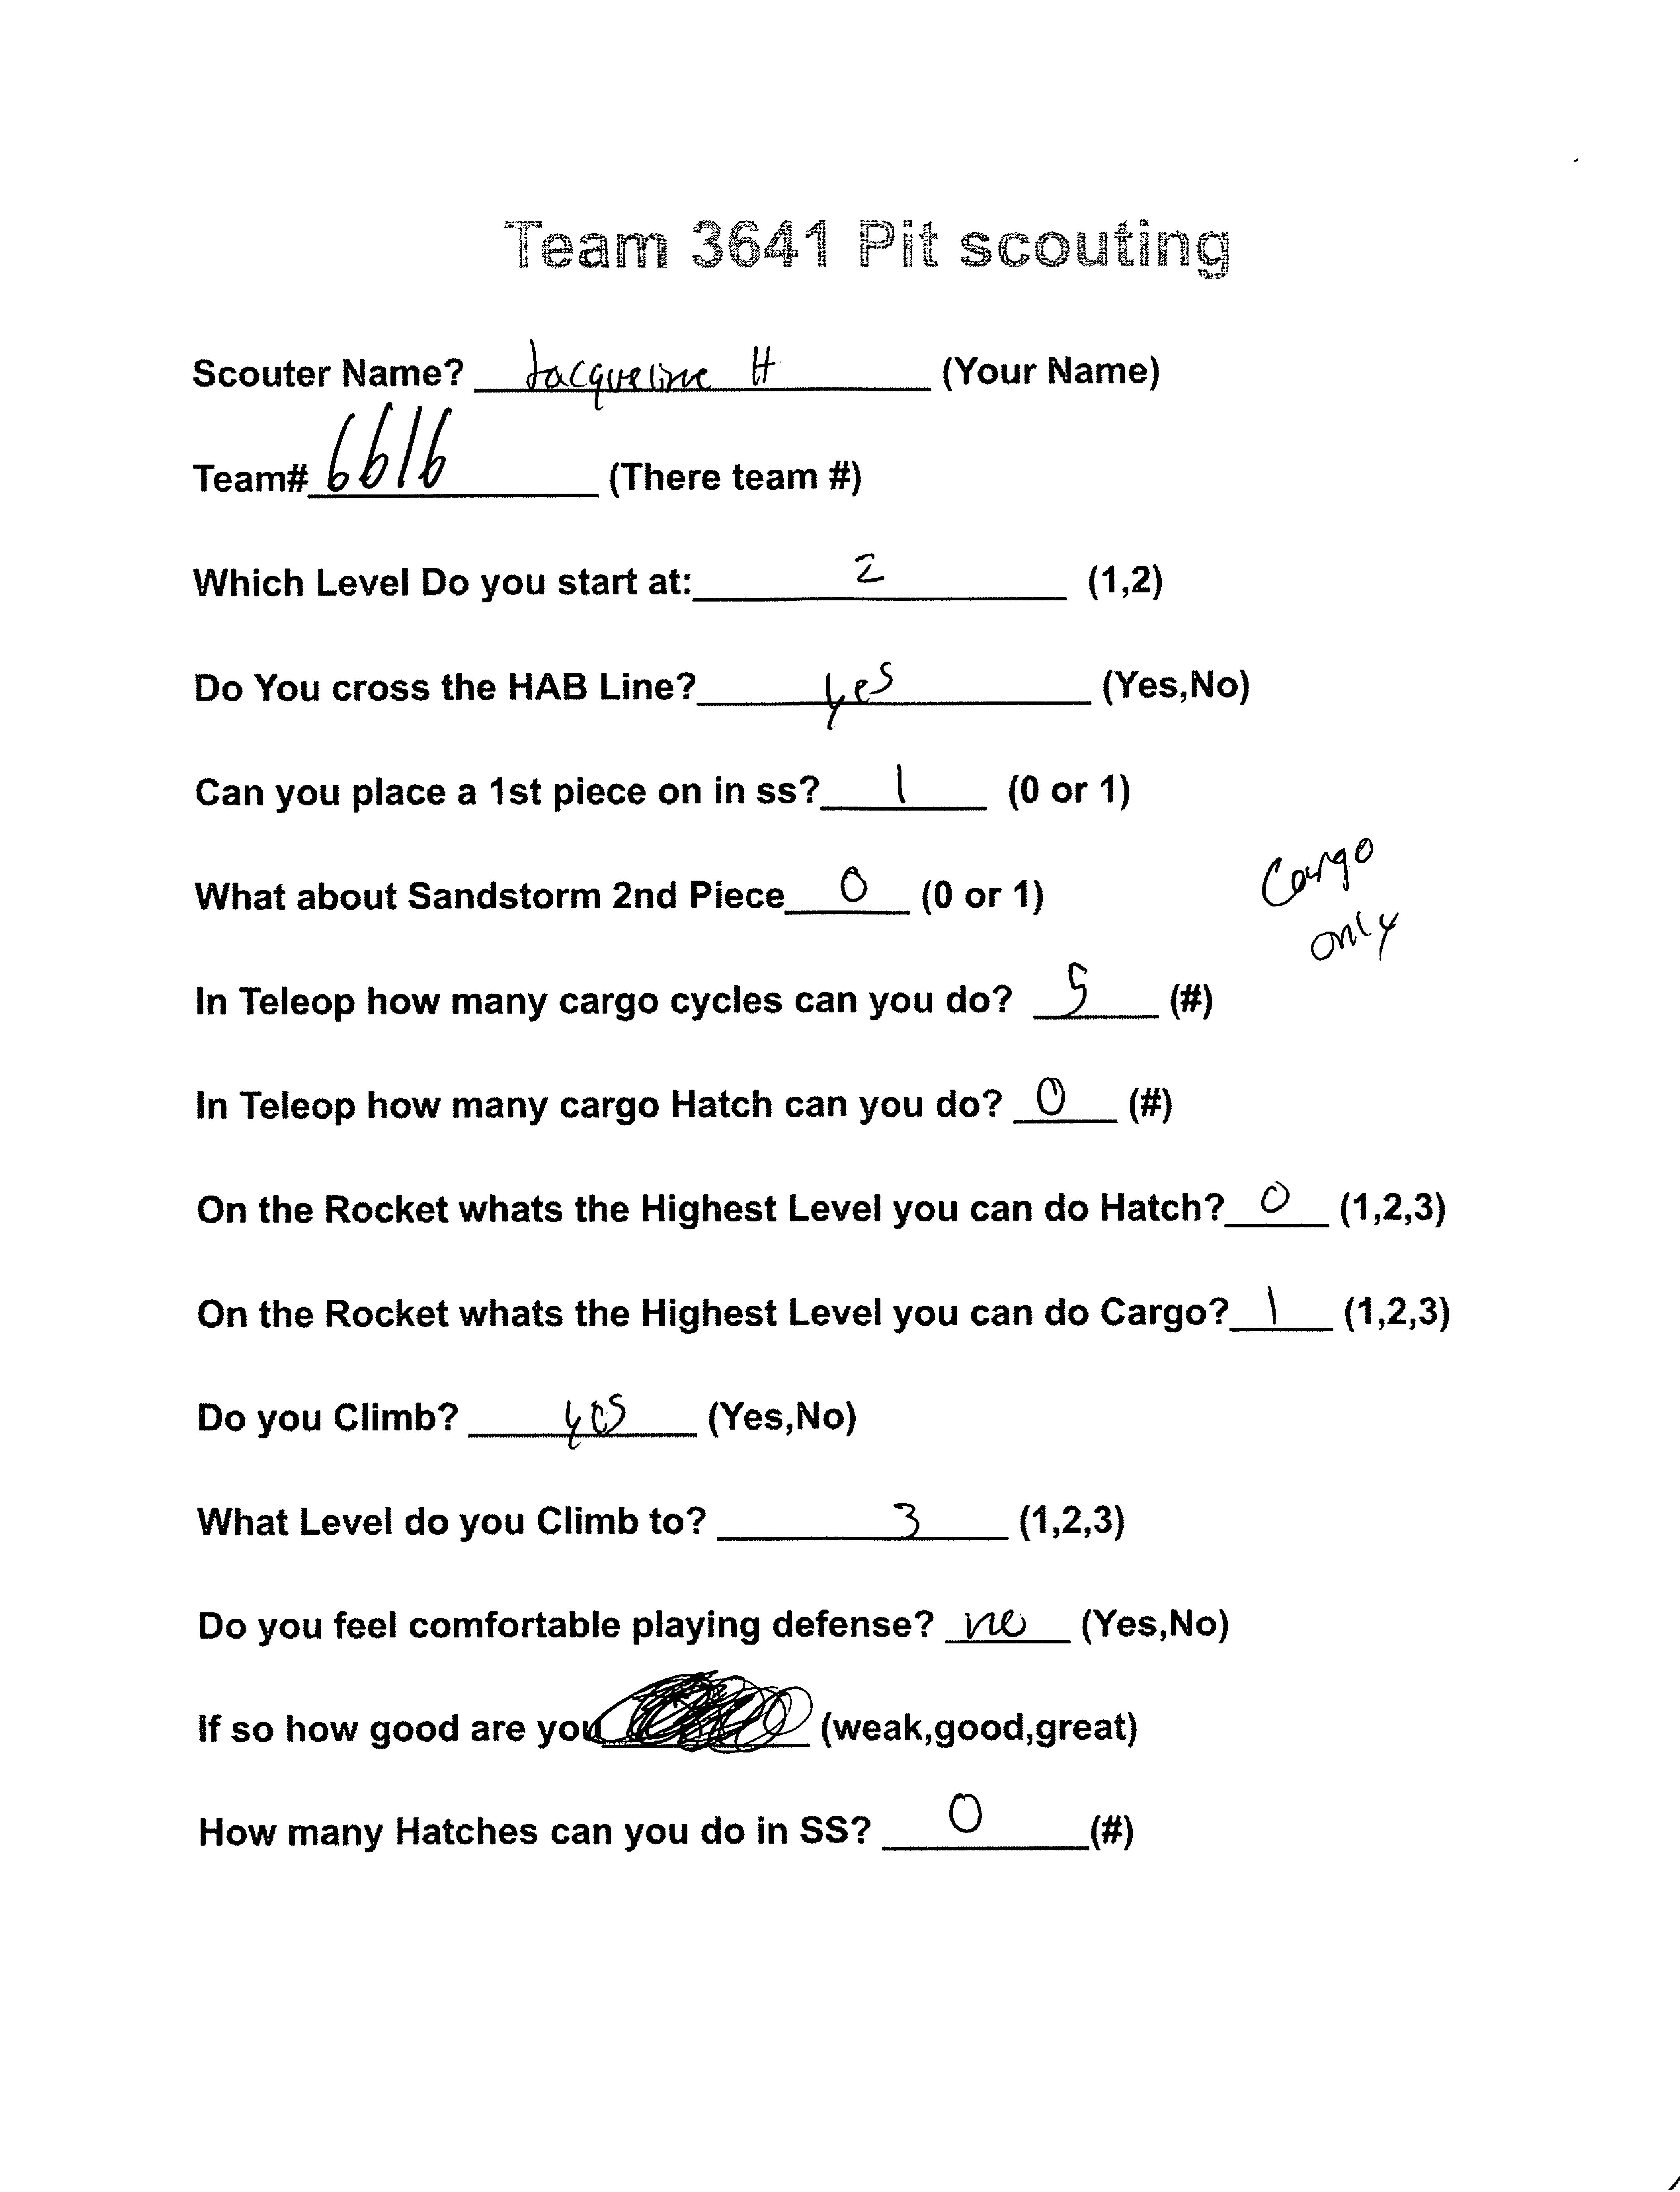 Team 3641 Pit scouting
Scouter Name? Jacqueline H (Your Name)
Team# 6616 (There team #)
Which Level Do you start at: 2 (1,2)
Do You cross the HAB Line? yes (Yes,No)
Can you place a 1st piece on in ss? 1 (0 or 1)
What about Sandstorm 2nd Piece 0 (0 or 1)
Cargo
only
In Teleop how many cargo cycles can you do? 5 (#)
In Teleop how many cargo Hatch can you do? 0 (#)
On the Rocket whats the Highest Level you can do Hatch? 0 (1,2,3)
On the Rocket whats the Highest Level you can do Cargo? 1 (1,2,3)
Do you Climb? yes (Yes,No)
What Level do you Climb to? 3 (1,2,3)
Do you feel comfortable playing defense? no (Yes,No)
If so how good are you (weak,good,great)
How many Hatches can you do in SS? 0 (#)